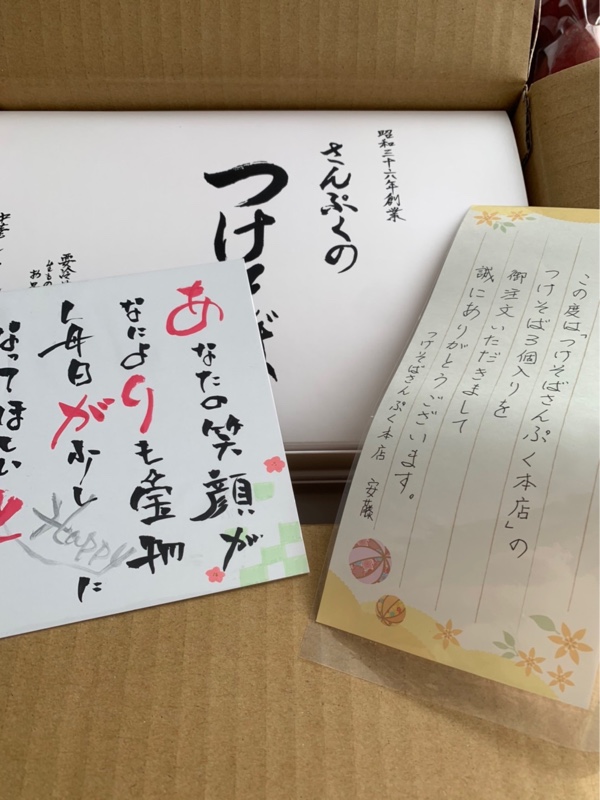 昭和三十六年創業
さんぷくの
つけそば
あなたの笑顔が
なによりも宝物
毎日が少し
Happy
に
なってほしい
と
この度は「つけそばさんぷく本店」の
つけそば3個入りを
御注文いただきまして
誠にありがとうございます。
つけそばさんぷく本店 安藤